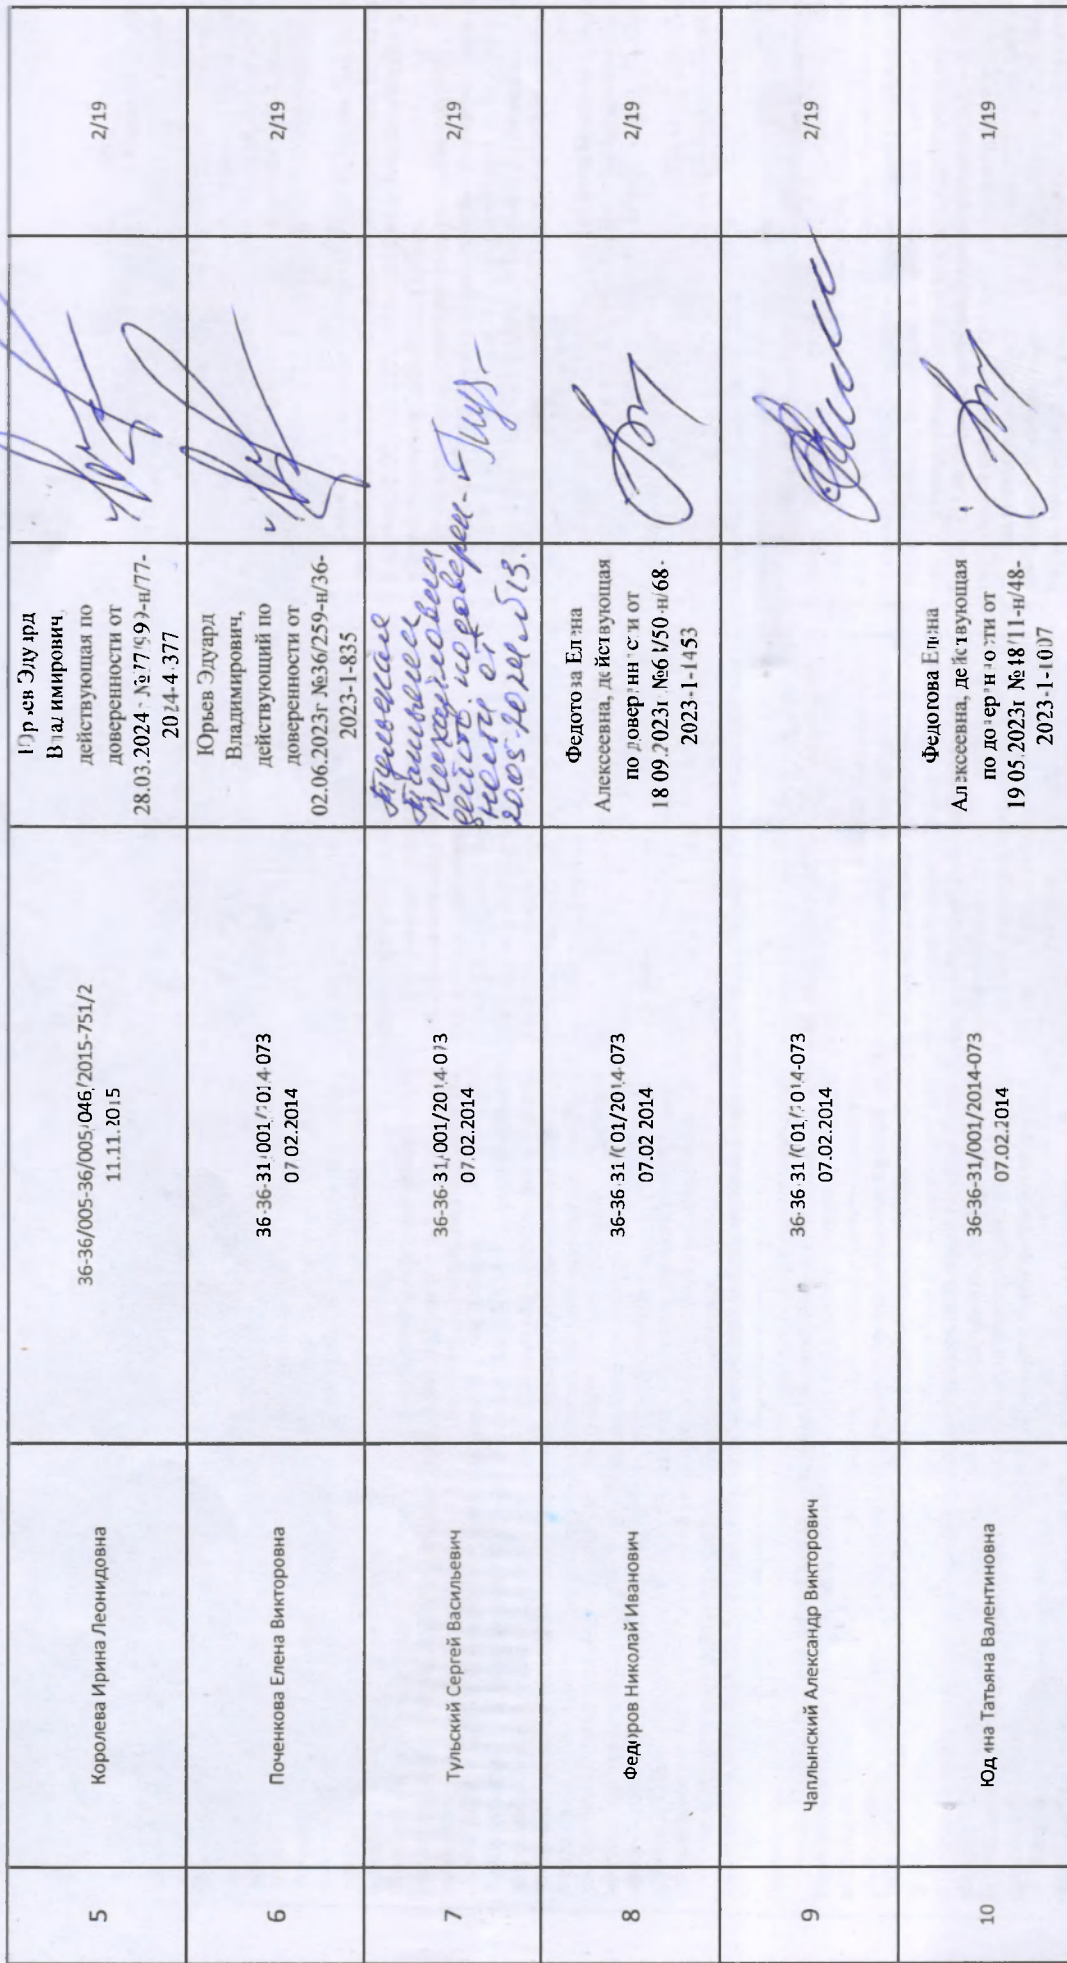 5
Королева Ирина Леонидовна
36-36/005-36/005/046/2015-751/2
11.11.2015
Юрьев Эдуард
Владимирович,
действующая по
доверенности от
28.03.2024
2024-4-377
2/19
6
Поченкова Елена Викторовна
36-36-31/001/2014-073
07.02.2014
Юрьев Эдуард
Владимирович,
действующий по
доверенности от
02.06.2023г №36/259-н/36-
2023-1-835
2/19
7
Тульский Сергей Васильевич
36-36-31/001/2014-073
07.02.2014
Михайловна
действ. по доверен-
ности от
20.05.2024 №13.
2/19
8
Федоров Николай Иванович
36-36-31/001/2014-073
07.02.2014
Федотова Елена
Алексеевна, действующая
по доверенности от
18.09.2023г
2023-1-1453
2/19
9
Чаплынский Александр Викторович
36-36-31/001/2014-073
07.02.2014
2/19
10
Юдина Татьяна Валентиновна
36-36-31/001/2014-073
07.02.2014
Федотова Елена
Алексеевна, действующая
по доверенности от
19.05.2023г
2023-1-1007
1/19